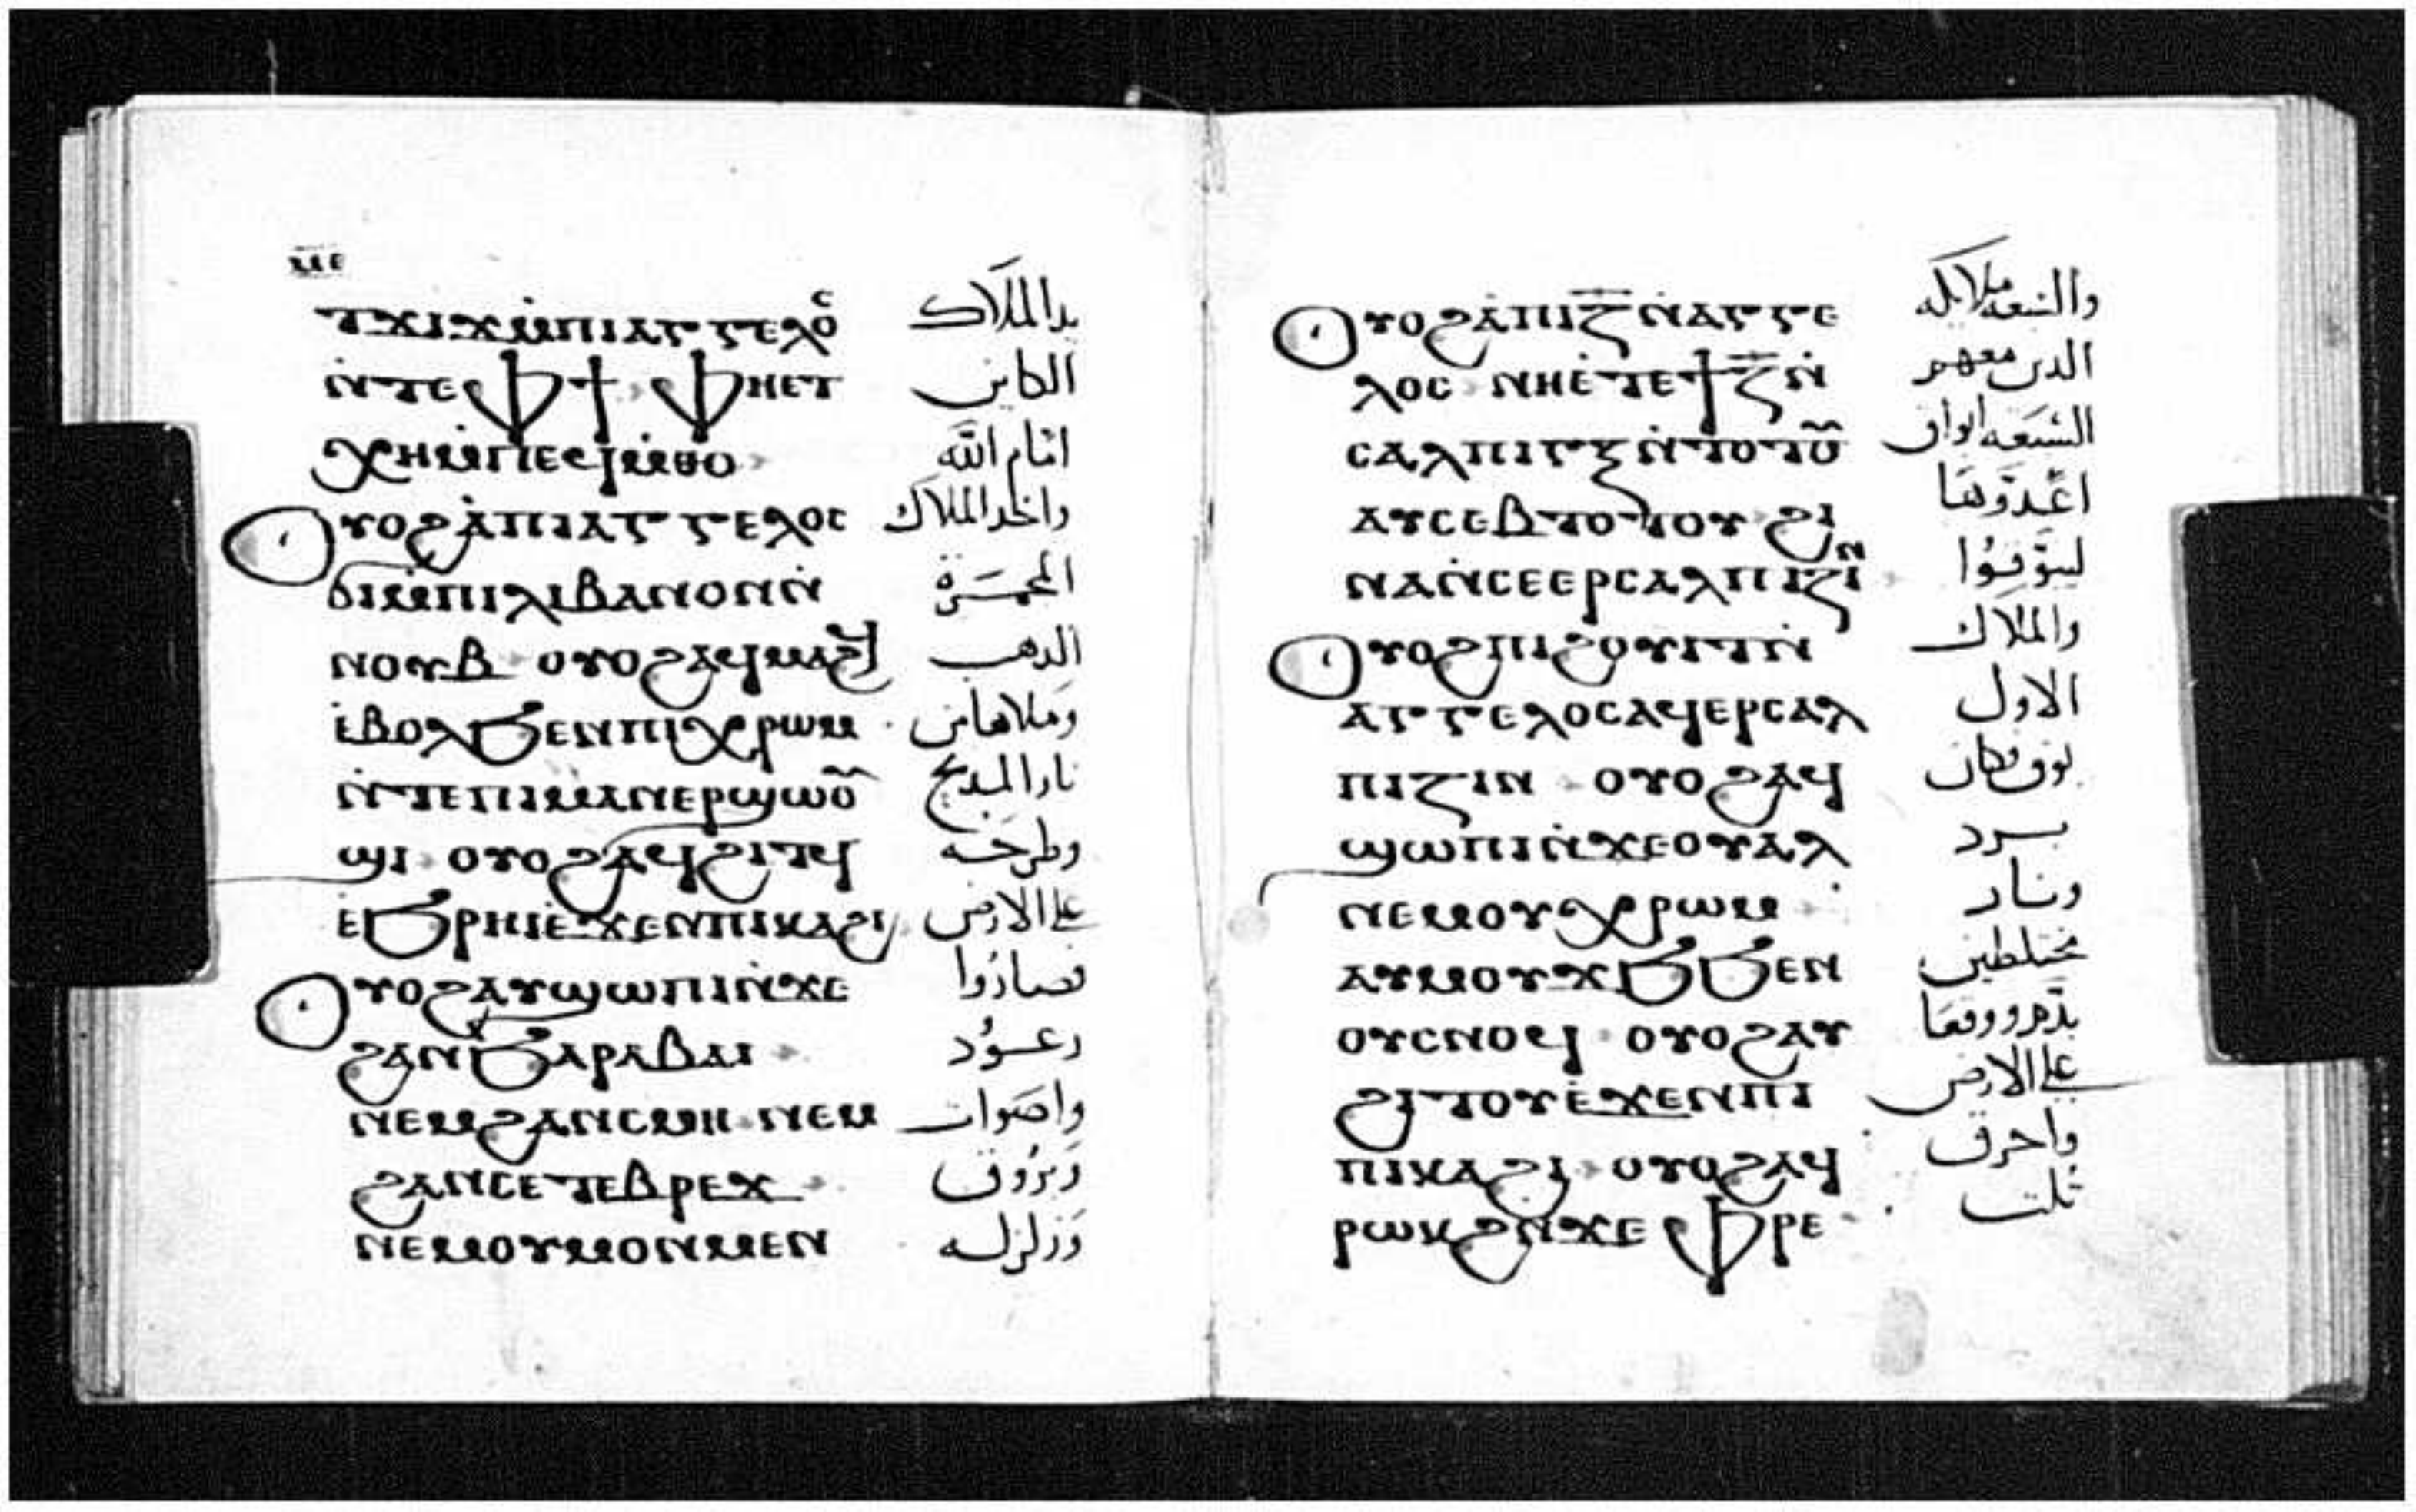 ⲙⲉ
ⲧϫⲓϫ ⲙ̀ⲡⲓⲁⲅⲅⲉⲗⲟⲥ يد الملاك
ⲛ̀ⲧⲉ ⲫϯ ⲫⲏⲉⲧ الكاين
ⲭⲏ ⲙ̀ⲡⲉϥⲙ̀ⲑⲟ امام الله
ⲟⲩⲟϩ ⲁ̀ⲡⲓⲁⲅⲅⲉⲗⲟⲥ واخد الملاك
ϭⲓ ⲙ̀ⲡⲓⲗⲓⲃⲁⲛⲟⲛ ⲛ̀ المجمرة
ⲛⲟⲩⲃ ⲟⲩⲟϩ ⲁϥⲙⲁϩϥ الدهب
ⲉ̀ⲃⲟⲗ ϧⲉⲛ ⲡⲓⲭⲣⲱⲙ وملاها من
ⲛ̀ⲧⲉ ⲡⲓⲙⲁⲛⲉⲣϣⲱⲟⲩ نار المدبح
ϣⲓ ⲟⲩⲟϩ ⲁϥϩⲓⲧϥ وطرحه
ⲉ̀ϧⲣⲏⲓ ⲉ̀ϫⲉⲛ ⲡⲓⲕⲁϩⲓ على الارض
ⲟⲩⲟϩ ⲁⲩϣⲱⲡⲓ ⲛ̀ϫⲉ فصاروا
ϩⲁⲛϧⲁⲣⲁⲃⲁⲓ رعود
ⲛⲉⲙ ϩⲁⲛⲥⲙⲏ ⲛⲉⲙ واصوات
ϩⲁⲛⲥⲉⲧⲉⲃⲣⲉϫ وبروق
ⲛⲉⲙ ⲟⲩⲙⲟⲛⲙⲉⲛ وزلزله
ⲟⲩⲟϩ ⲁ̀ⲡⲓⲍ̅ ⲛ̀ⲁⲅⲅⲉ والسبعه ملايكه
ⲗⲟⲥ ⲛⲏⲉ̀ⲧⲉ ϯⲍ̅ ⲛ̀ الدين معهم
ⲥⲁⲗⲡⲓⲅⲝ ⲛ̀ⲧⲟⲧⲟⲩ السبعه ابواق
ⲁⲩⲥⲉⲃⲧⲟⲧⲟⲩ ϩⲓ اعدوها
ⲛⲁ ⲛ̀ⲥⲉⲉⲣⲥⲁⲗⲡⲓⲍⲓⲛ ليبوقوا
ⲟⲩⲟϩ ⲡⲓϩⲟⲩⲓⲧ ⲛ̀ والملاك
ⲁⲅⲅⲉⲗⲟⲥ ⲁϥⲉⲣⲥⲁⲗ الاول
ⲡⲓⲍⲓⲛ ⲟⲩⲟϩ ⲁϥ بوق فكان
ϣⲱⲡⲓ ⲛ̀ϫⲉ ⲟⲩⲁⲗ برد
ⲛⲉⲙ ⲟⲩⲭⲣⲱⲙ ونار
ⲁⲩⲙⲟⲩϫϧ ϧⲉⲛ مختلطين
ⲟⲩⲥⲛⲟϥ ⲟⲩⲟϩ ⲁⲩ بدم ووقعا
ϩⲓⲧⲟⲩ ⲉ̀ϫⲉⲛ ⲡⲓ على الارض
ⲡⲓⲕⲁϩⲓ ⲟⲩⲟϩ ⲁϥ واحرق
ⲣⲱⲕϩ ⲛ̀ϫⲉ ⲫⲣⲉ ثلت